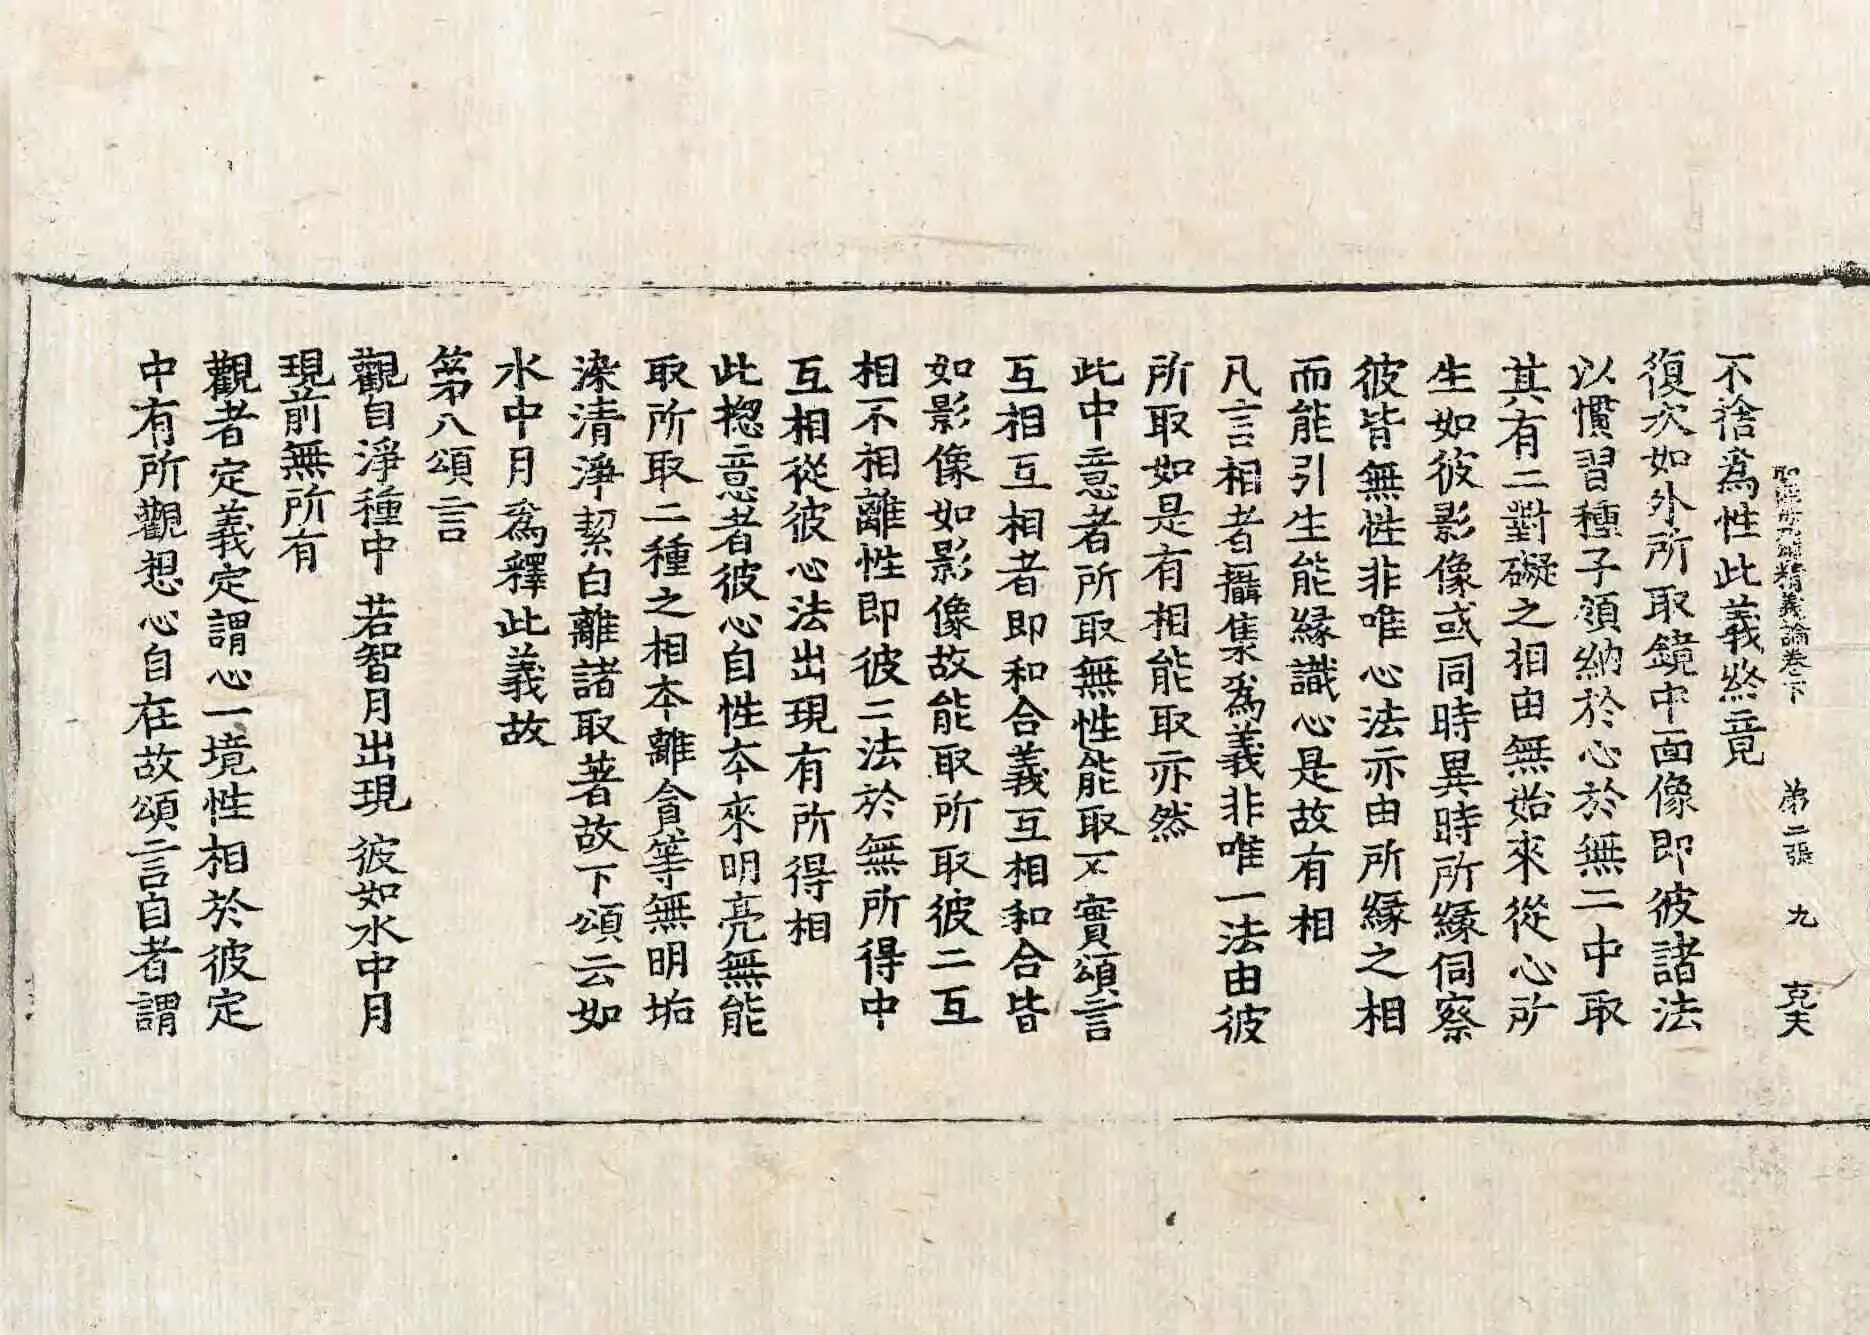 精義論卷下 第二張 九 克夫
不捨爲性此義終竟
復次如外所取鏡中面像即彼諸法
以慣習種子領納於心於無二中取
其有二對礙之相由無始來從心所
生如彼影像或同時異時所緣伺察
彼皆無性非唯心法亦由所緣之相
而能引生能緣識心是故有相
凡言相者攝集爲義非唯一法由彼
所取如是有相能取亦然
此中意者所取無性能取不實頌言
互相互相者即和合義互相和合皆
如影像如影像故能取所取彼二互
相不相離性即彼二法於無所得中
互相從彼心法出現有所得相
此揔意者彼心自性本來明亮無能
取所取二種之相本離貪等無明垢
染清淨絜白離諸取著故下頌云如
水中月爲釋此義故
第八頌言
觀自淨種中 若智月出現 彼如水中月
現前無所有
觀者定義定謂心一境性相於彼定
中有所觀想心自在故頌言自者謂